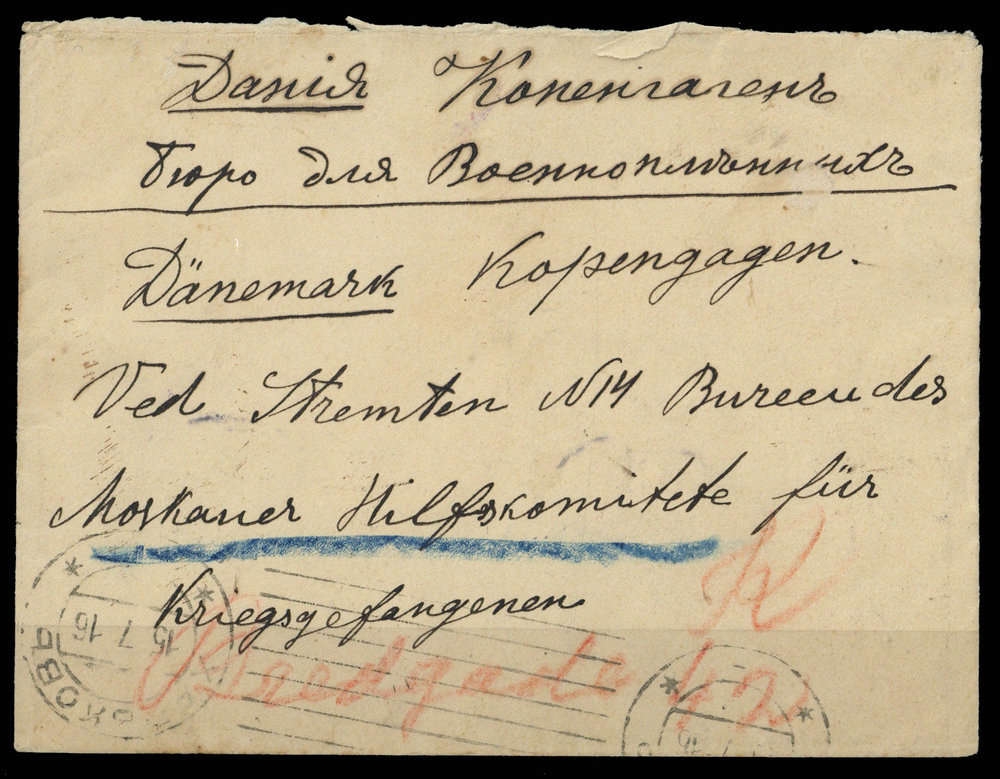 Данія Копенгагенъ
Бюро для Военноплѣнныхъ
Dänemark Kopengagen.
Ved Stremten N14 Bureau des
Moskauer Hilfskomitete für
Kriegsgefangenen
K
Bredgade 42
15 7 16